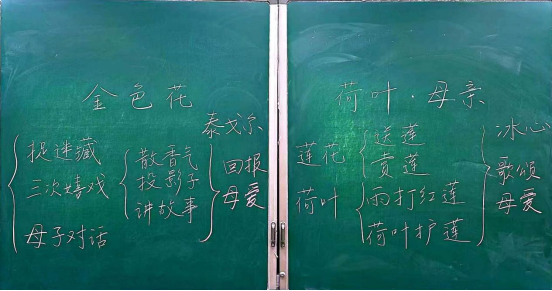 金色花
泰戈尔
捉迷藏
三次嬉戏
母子对话
散香气
投影子
讲故事
回报
母爱
荷叶·母亲
冰心
莲花
荷叶
送莲
赏莲
雨打红莲
荷叶护莲
歌颂
母爱